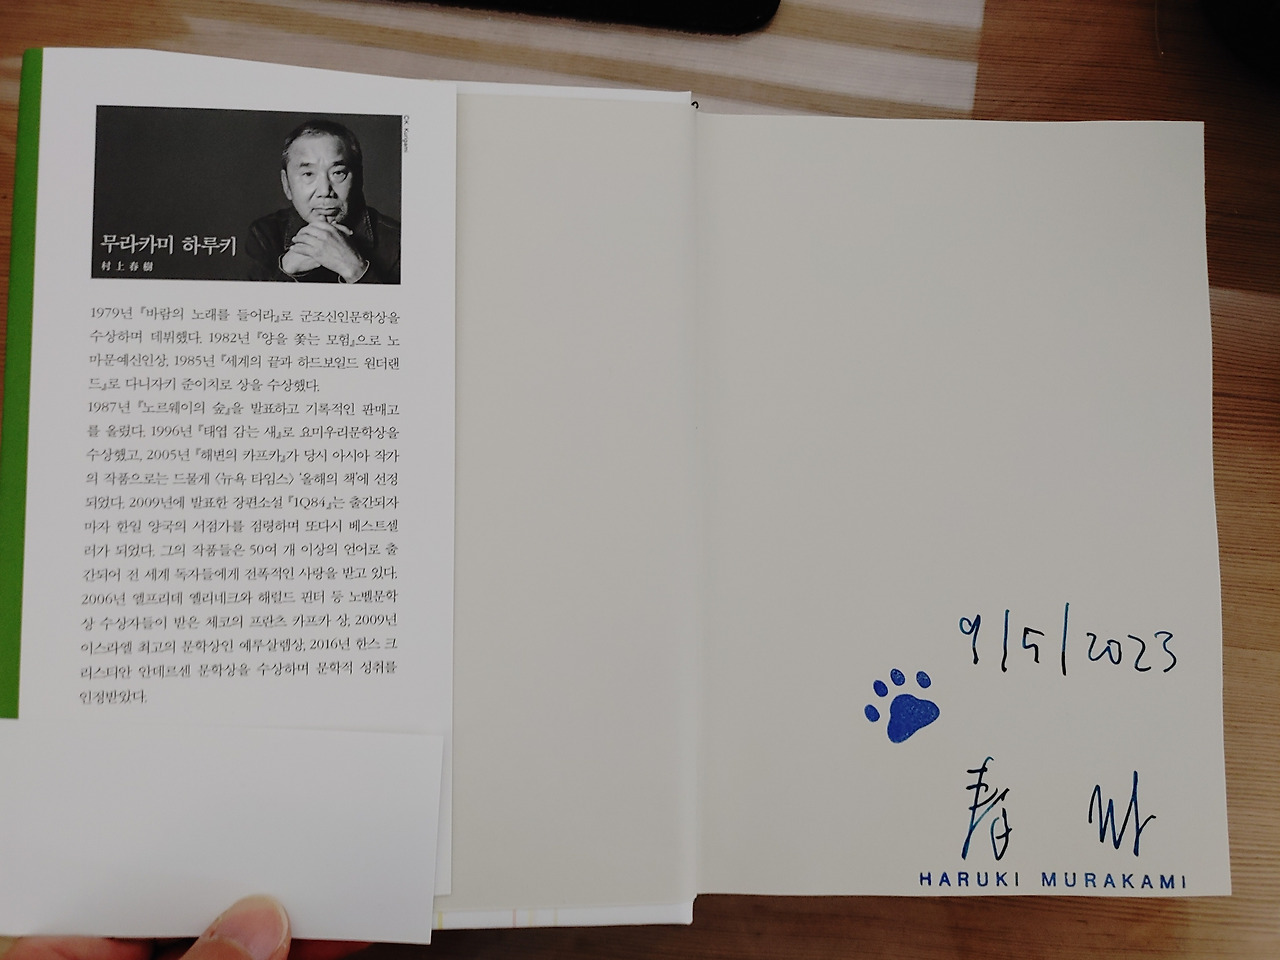 ©K. Kurigami
무라카미 하루키
村上春樹
1979년 『바람의 노래를 들어라』로 군조신인문학상을
수상하며 데뷔했다. 1982년 『양을 쫓는 모험』으로 노
마문예신인상, 1985년 『세계의 끝과 하드보일드 원더랜
드』로 다니자키 준이치로 상을 수상했다.
1987년 『노르웨이의 숲』을 발표하고 기록적인 판매고
를 올렸다. 1996년 『태엽 감는 새』로 요미우리문학상을
수상했고, 2005년 『해변의 카프카』가 당시 아시아 작가
의 작품으로는 드물게 〈뉴욕 타임스〉 '올해의 책'에 선정
되었다. 2009년에 발표한 장편소설 『1Q84』는 출간되자
마자 한일 양국의 서점가를 점령하며 또다시 베스트셀
러가 되었다. 그의 작품들은 50여 개 이상의 언어로 출
간되어 전 세계 독자들에게 전폭적인 사랑을 받고 있다.
2006년 엘프리데 옐리네크와 해럴드 핀터 등 노벨문학
상 수상자들이 받은 체코의 프란츠 카프카 상, 2009년
이스라엘 최고의 문학상인 예루살렘상, 2016년 한스 크
리스티안 안데르센 문학상을 수상하며 문학적 성취를
인정받았다.
9/5/2023
HARUKI MURAKAMI